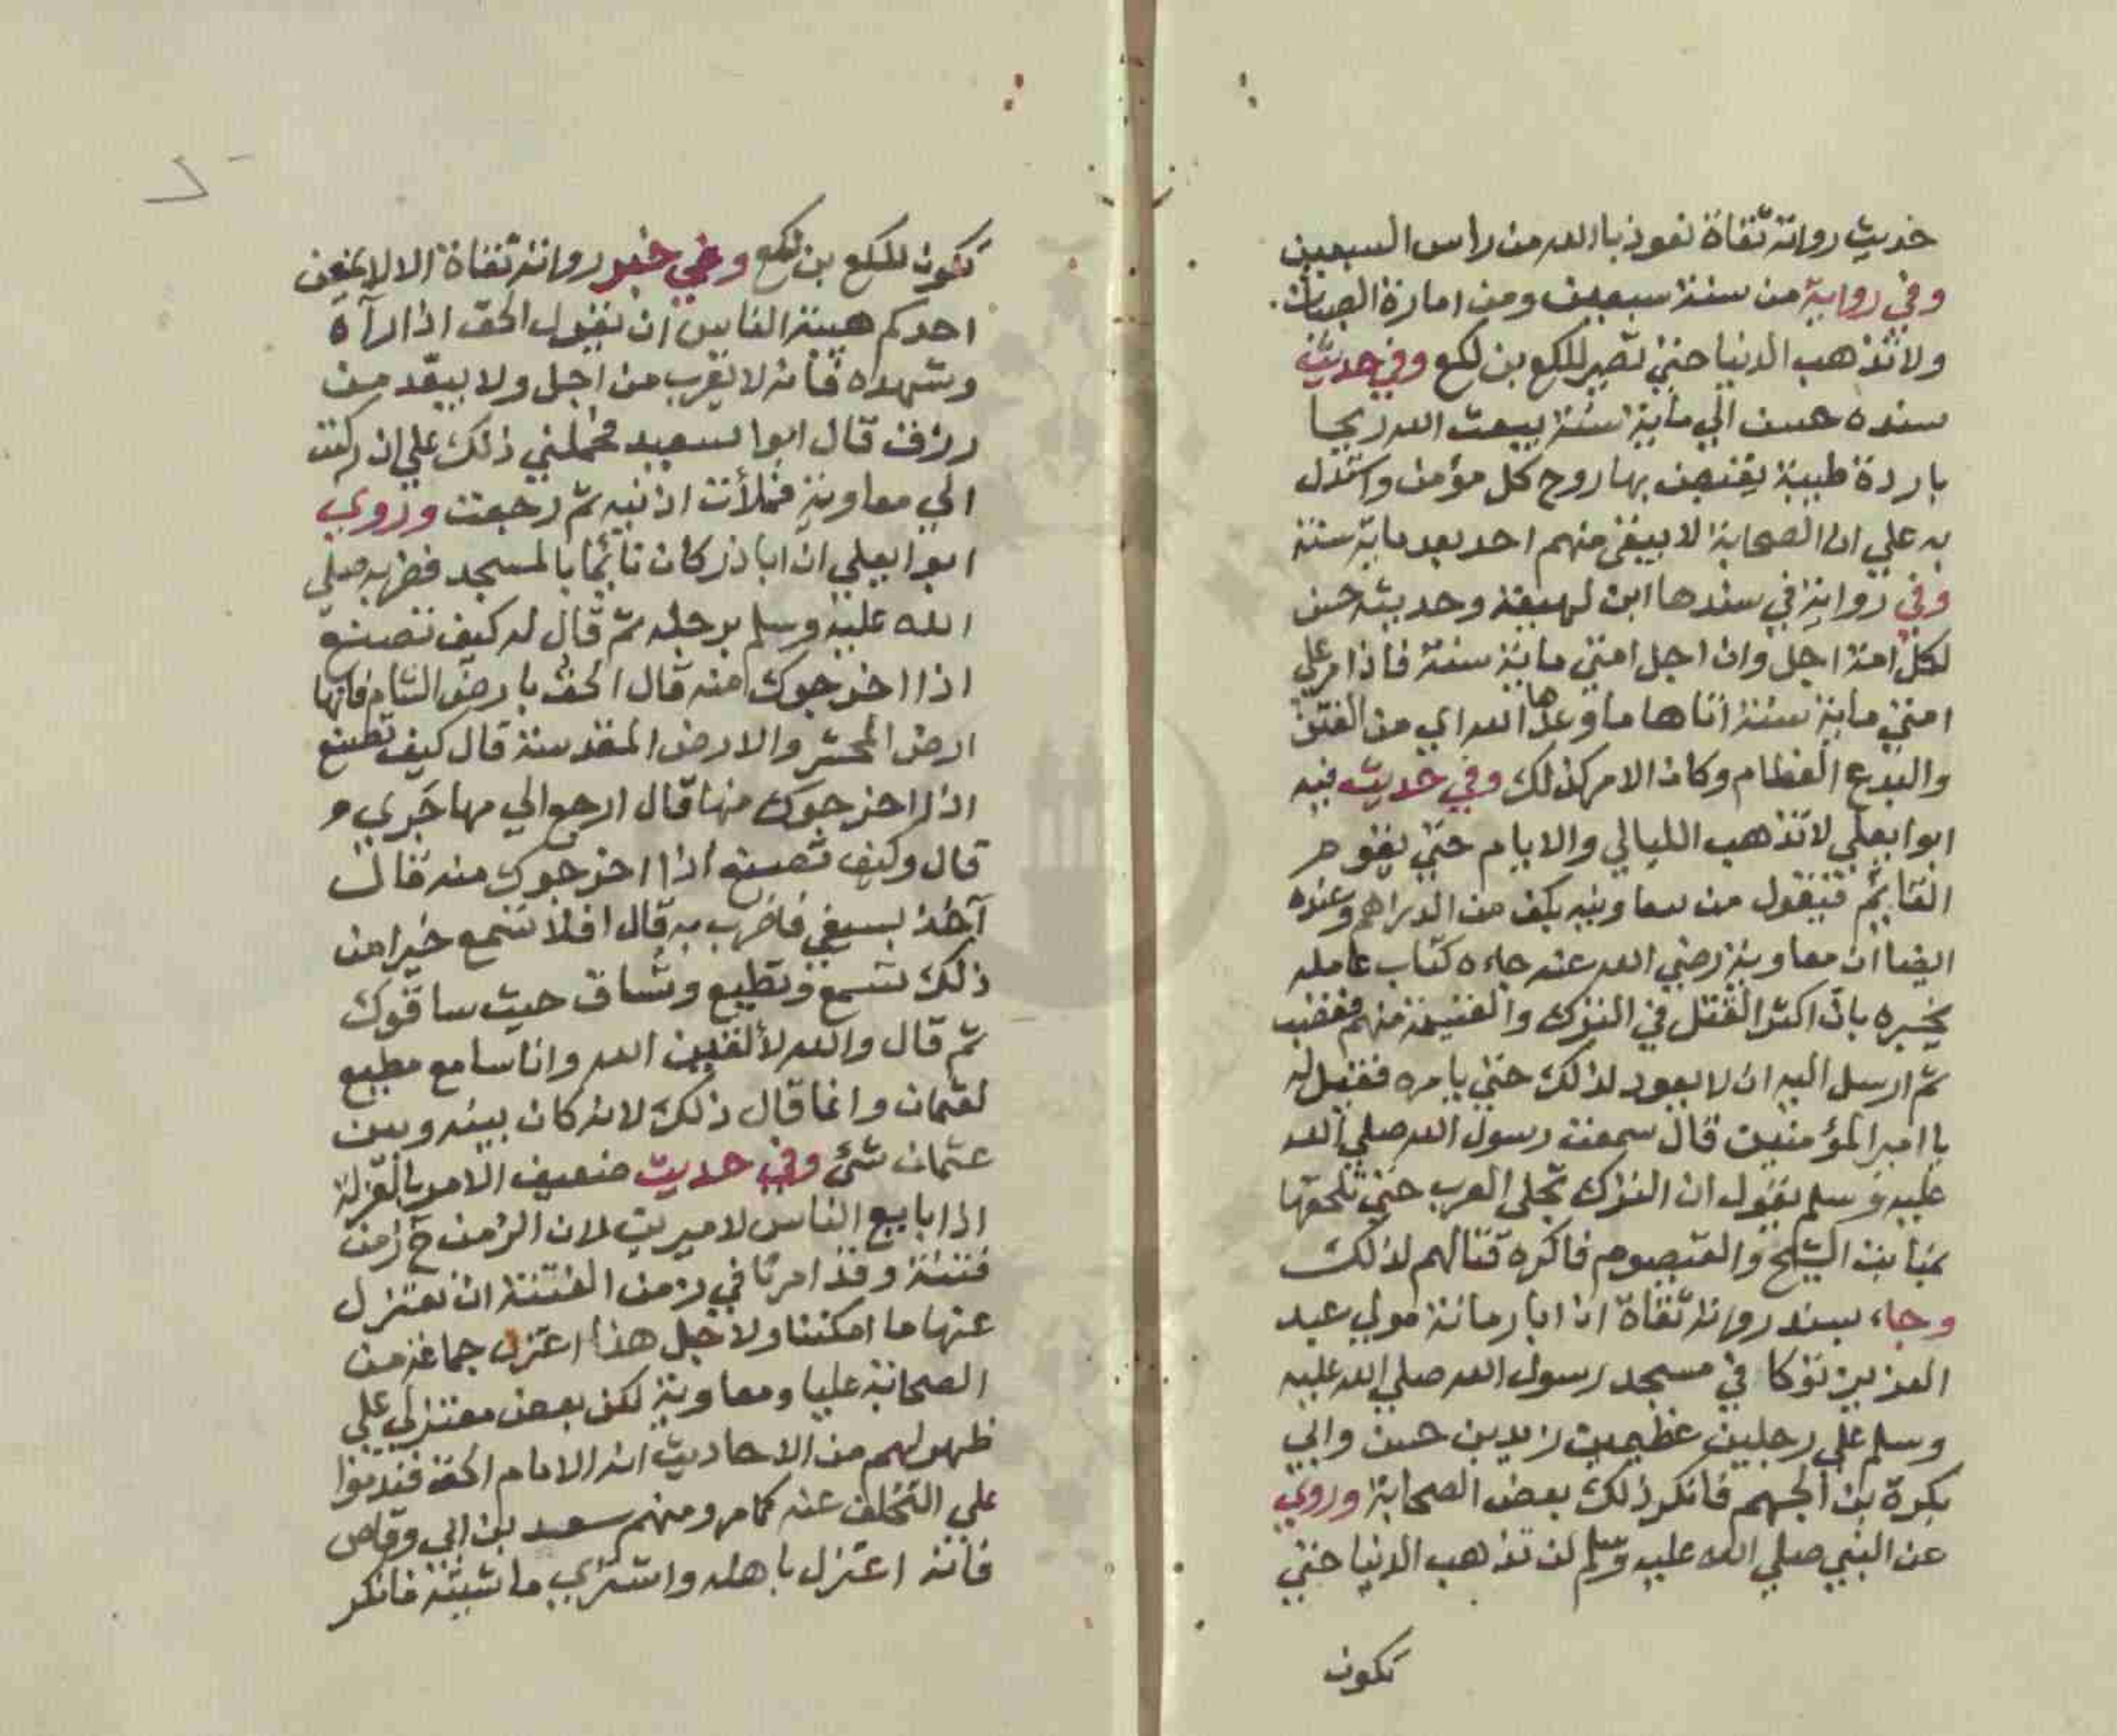 حديث رواته ثقاة نعوذ بالله من راس السبعين
وفي رواية من سنة سبعين ومن امارة الصبيان
ولا تذهب الدنيا حتي تصير للكع بن لكع وفي حديث
سنده حسن الي ماية سنة يبعث الله ريحا
باردة طيبة يقبض بها روح كل مؤمن واستدل
به علي ان الصحابة لا يبقي منهم احد بعد ماية سنة
وفي رواية في سندها ابن لهيعة وحديثه حسن
لكل امة اجل وان اجل امتي ماية سنة فاذا مر علي
امتي ماية سنة اتاها ما وعدها الله اي من الفتن
والبدع العظام وكان الامر كذلك وفي حديث فيه
ابوا يعلي لا تذهب الليالي والايام حتي يقوم
القايم فيقول من يبيعنا دينه بكف من الدراهم وعنده
ايضا ان معاوية رضي الله عنه جاءه كتاب عامله
يخبره بان اكثر القتل في الترك والغنيمة منهم فغضب
ثم ارسل اليه ان لا يعود لذلك حتي يامره فقيل له
يا امير المؤمنين قال سمعت رسول الله صلي الله
عليه وسلم يقول ان الترك تجلي العرب حتي تلحقها
بمنابت الشيح والقيصوم فاكره قتالهم لذلك
وجاء بسند رواته ثقاة ان ابا رمانة مولي عبد
العزيز توكا في مسجد رسول الله صلي الله عليه
وسلم علي رجلين عظيمين زيد بن حسن وابي
بكرة بن الجهم فانكر ذلك بعض الصحابة وروي
عن النبي صلي الله عليه وسلم لن تذهب الدنيا حتي
تكون
تكون للكع بن لكع وفي خبر رواته ثقاة الا لا يمنعن
احدكم هيبة الناس ان يقول الحق اذا رآه
وشهده فانه لا يقرب من اجل ولا يبعد من
رزق قال ابوا سعيد فحملني ذلك علي ان ركبت
الي معاوية فملأت اذنيه ثم رجعت وروي
ابوا يعلي ان ابا ذر كان نائما بالمسجد فضربه صلي
الله عليه وسلم برجله ثم قال له كيف تصنع
اذا اخرجوك منه قال الحق بارض الشام فانها
ارض المحشر والارض المقدسة قال كيف تصنع
اذا اخرجوك منها قال ارجع الي مهاجري
قال وكيف تصنع اذا اخرجوك منه قال
آخذ بسيفي فاضرب به قال افلا تسمع خيرا من
ذلك تسمع وتطيع وتساق حيث ساقوك
ثم قال والله لألقين الله وانا سامع مطيع
لعثمان وانما قال ذلك لانه كان بينه وبين
عثمان شئ وفي حديث ضعيف الامر بالعزلة
اذا بايع الناس لاميرين لان الزمن ح زمن
فتنة وقد امرنا في زمن الفتنة ان نعتزل
عنها ما امكننا ولاجل هذا اعتزل جماعة من
الصحابة عليا ومعاوية لكن بعض معتزلي علي
ظهر لهم من الاحاديث انه الامام الحق فندموا
علي التخلف عنه كما مر ومنهم سعد بن ابي وقاص
فانه اعتزل باهله واشتري ماشية فانكر